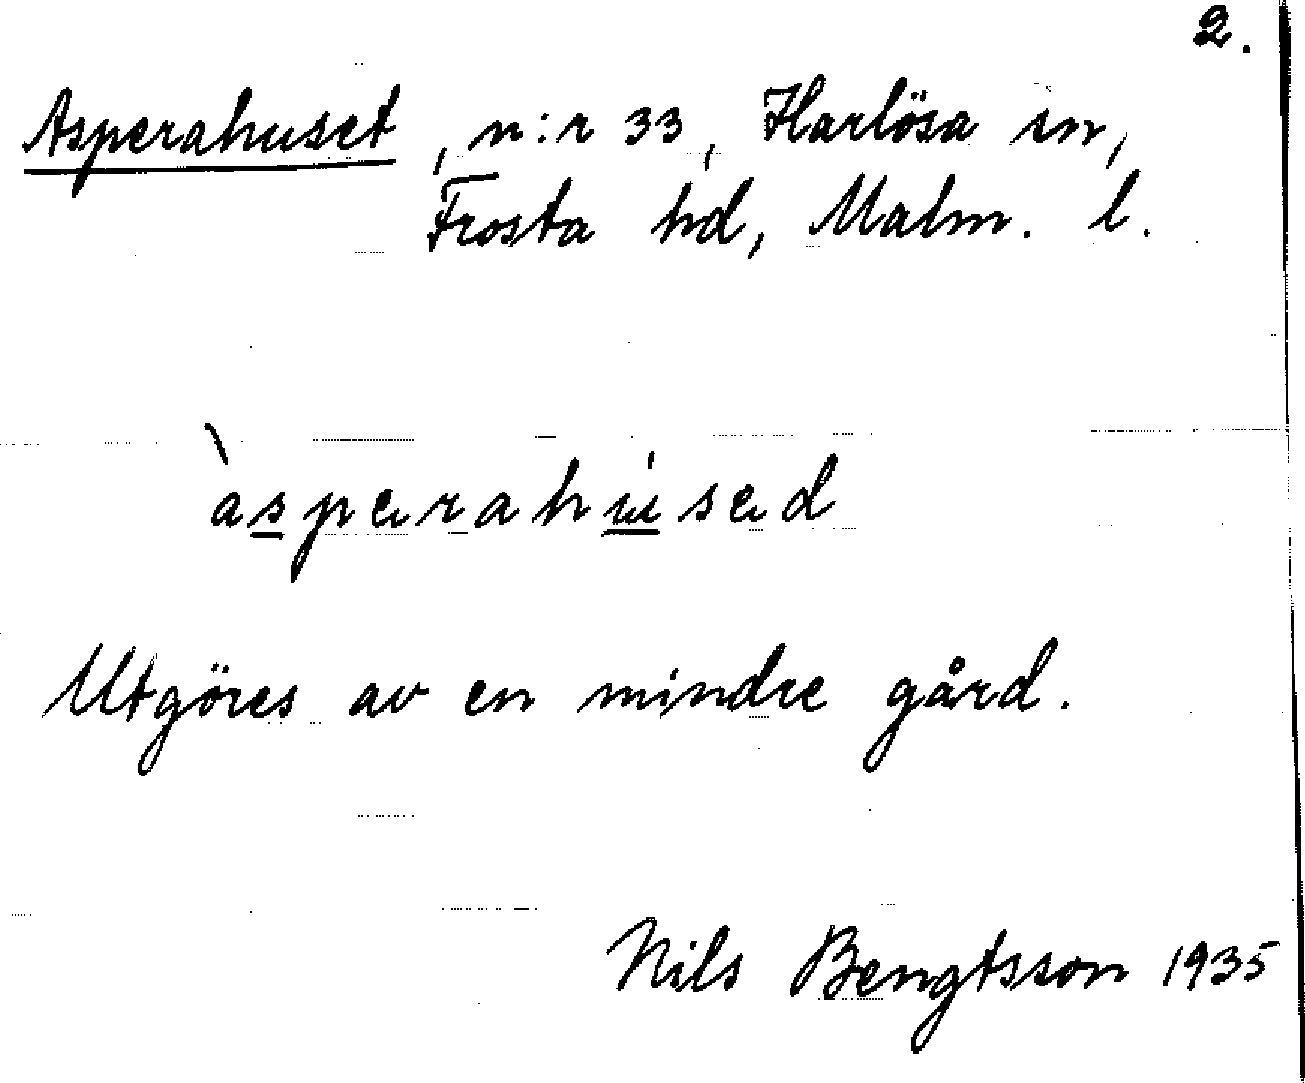 2.
Asperahuset, n:r 33, Harlösa sn,
Frosta hd, Malm. l.
àsperahúsed
Utgöres av en mindre gård.
Nils Bengtsson 1935